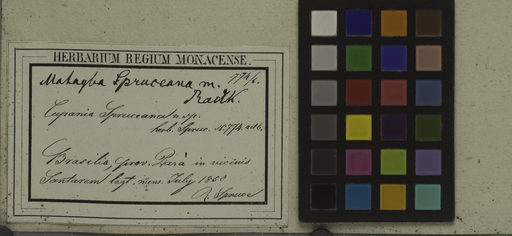 HERBARIUM REGIUM MONACENSE.
Matayba Spruceana m. 774/6.
Radlk.
Cupania Spruceana n. sp.
herb. Spruc. N. 774. ad 6.
Brasilia, prov. Pará in vicinis
Santarem legt. mens. July 1850
R. Spruce